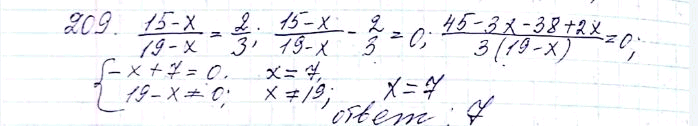 209. (15-x)/(19-x) = 2/3; (15-x)/(19-x) - 2/3 = 0; (45-3x-38+2x)/(3(19-x)) = 0;
{ -x+7=0. x=7,
19-x≠0; x≠19; x=7
ответ: 7